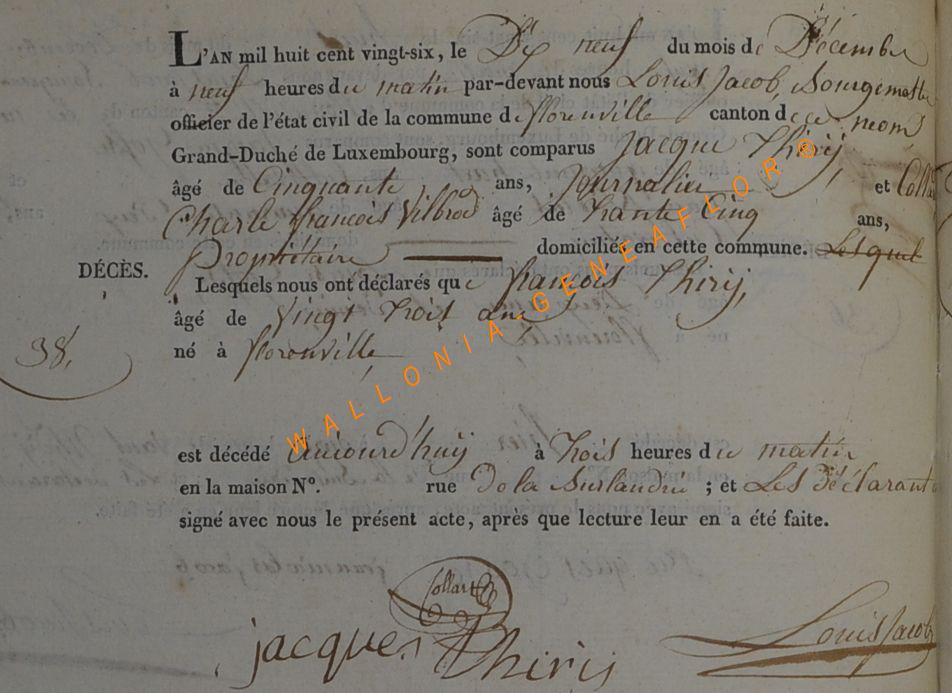 L'AN mil huit cent vingt-six, le Dix neuf du mois de Décembre
à neuf heures du matin par-devant nous Louis Jacob, Bourgemettre
officier de l'état civil de la commune de florenville canton de
Grand-Duché de Luxembourg, sont comparus Jacque Thirij
âgé de Cinquante ans, Journalier et Collart
Charle françois Vilbrod âgé de trante Cinq ans,
Propriétaire domiciliés en cette commune. Lesquel
DÉCÈS. Lesquels nous ont déclarés que françois Thirij,
âgé de vingt trois ans
38, né à florenville
est décédé aujourd'huij à trois heures du matin
en la maison N°. rue De la ; et Les Déclarant
signé avec nous le présent acte, après que lecture leur en a été faite.
Collart
jacques Thirij Louis Jacob
WALLONIA GENEAFLOR ®